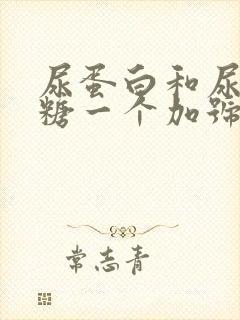 尿蛋白和尿
糖一个加号
常志青